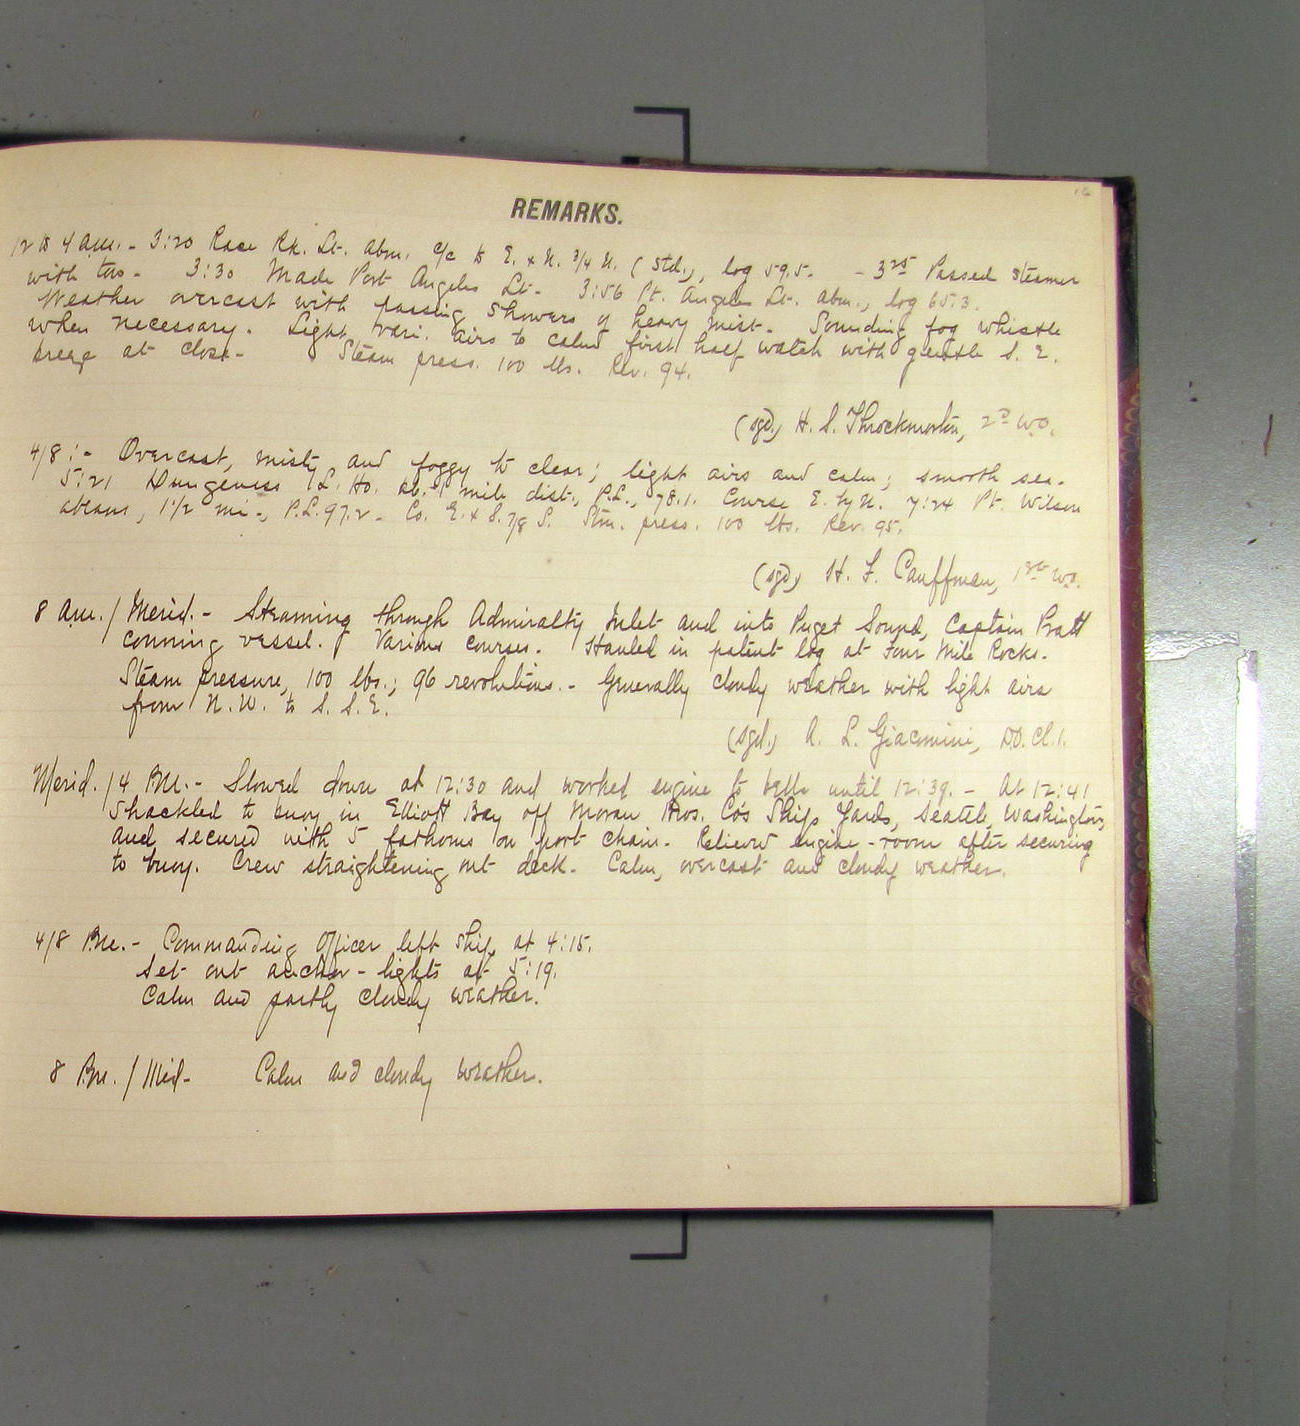 REMARKS.
12 to 4 a.m. - 3:20 Race Rk. Lt. abm. c/c to E. x N. 3/4 N. (Std.), log 59.5. - 3 25 Passed steamer
with tow - 3:30 Made Port Angeles Lt. - 3:56 Pt. Angeles Lt. abm., log 65.3.
Weather overcast with passing showers & heavy mist. Sounding fog whistle
when necessary. Light vari. airs to calm first half watch with gentle S. E.
breeze at close. Steam press. 100 lbs. Rev. 94.
(sgd.) H. S. Throckmorton, 2d W.O.
4/8:- Overcast, misty and foggy to clear; light airs and calm; smooth sea.
5:21 Dungeness L. Ho. ab. 1 mile dist., P.L., 78.1. Course E. by N. 7:24 Pt. Wilson
abeam, 1 1/2 mi-, P.L. 97.2 - Co. E. x S. 7/8 S. Stm. press. 100 lbs. Rev. 95.
(sgd) H. F. Cauffman, 1st W.O.
8 a.m. / Merid. - Steaming through Admiralty Inlet and into Puget Sound, Captain Pratt
conning vessel. Various courses. Hauled in patent log at Four Mile Rocks.
Steam pressure, 100 lbs.; 96 revolutions. - Generally cloudy weather with light airs
from N.W. to S. S. E.
(sgd.) A. L. Giacomini, D.O. Cl. 1.
Merid. / 4 P.M. - Slowed down at 12:30 and worked engine to bells until 12:39. - At 12:41
shackled to buoy in Elliott Bay off Moran Bros. Co's Ship Yards, Seattle, Washington,
and secured with 5 fathoms on port chain. Relieved engine-room after securing
to buoy. Crew straightening out deck. Calm, overcast and cloudy weather.
4/8 P.M. - Commanding Officer left ship at 4:15.
Set out anchor-lights at 5:19.
Calm and partly cloudy weather.
8 P.M. / Mid- Calm and cloudy weather.